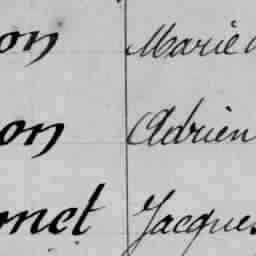 on Marie
on Adrien
met Jacques